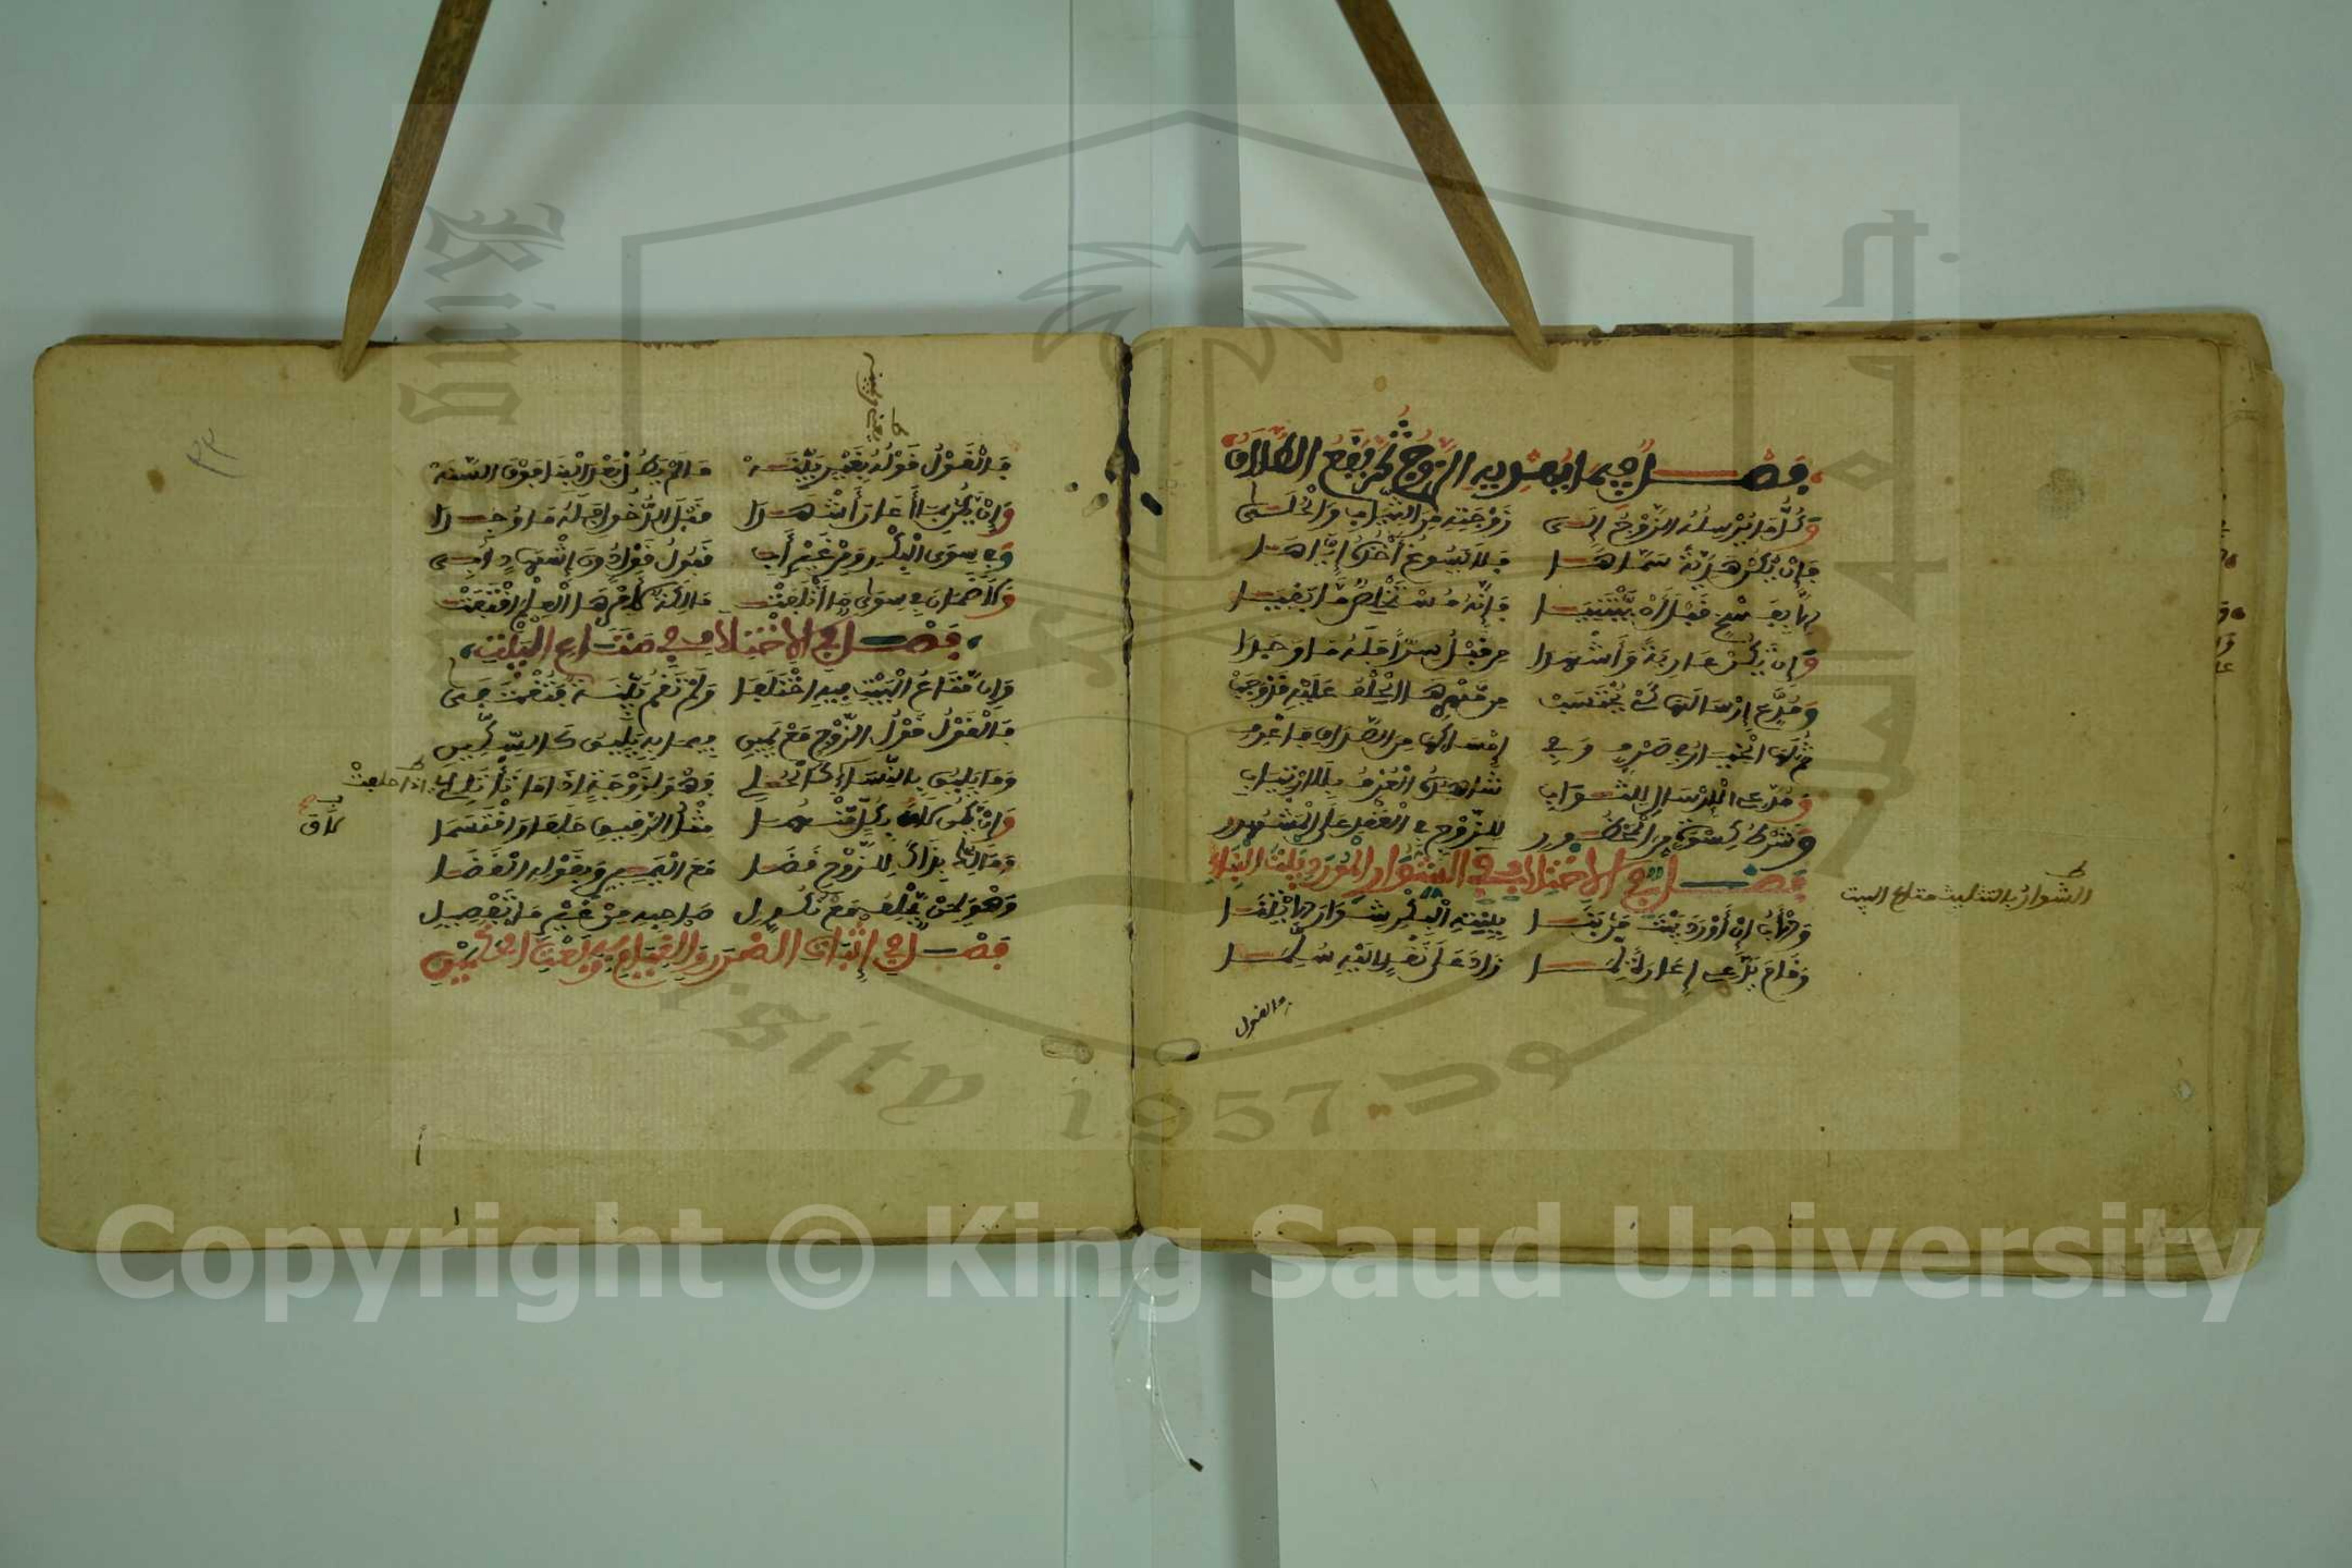 فصل فيما يهديه الزوج ثم يقع الطلاق
وكل ما يرسله الزوج إلى زوجته من الثياب والحلى
فإن يكن هدية سماها فلا يسوغ أخذه إياها
إلا بفسخ قبل أن يبتنيا فإنه مستخلص ما بقيا
وإن يكن عارية وأشهدا من قبل سرا فله ما وجدا
ومدع إرسالها كي تحتسب من مهرها الحلف عليه قد وجب
ثم لها الخيار في صرف وفي إمساكها من الصداق فاعرف
ومدعي الإرسال للثواب شاهده العرف بلا ارتياب
وشرط كسوة من المحظور للزوج في العقد على المشهور
فصل في الاختلاف في الشوار المورد بيت البناء
والأب إن أورد بيت من بنى ببنته البكر شوارا لابتنا
وقام يدعي إعارة لما زاد على نقد إليه سلما
فالقول
الشوار بالتثليث متاع البيت
فالقول قوله بغير بينه ما لم يطل بعد البنا فوق السنه
وإن يكن بما أعار أشهدا قبل الدخول فله ما وجدا
وفي سوى البكر ومن غير أب قبول قول دون إشهاد أبي
ولا ضمان في سوى ما أتلفت مالكة لأمرها العلم اقتفت
فصل في الاختلاف في متاع البيت
وإن متاع البيت فيه اختلفا ولم تقم بينة فتقتفى
فالقول قول الزوج مع يمين فيما به يليق كالسكين
وما يليق بالنساء كالحلي فهو لزوجة إذا ما تأتلي
إذا حلفت
وإن يكن لاق بكل منهما مثل الرقيق حلفا واقتسما
لاق
ومالك بذاك للزوج قضى مع اليمين وبقوله القضا
وهو لمن يحلف مع نكول صاحبه من غير ما تفصيل
فصل في إثبات الضرر والقيام به وبعث الحكمين
٣٣
Copyright © King Saud University
1957